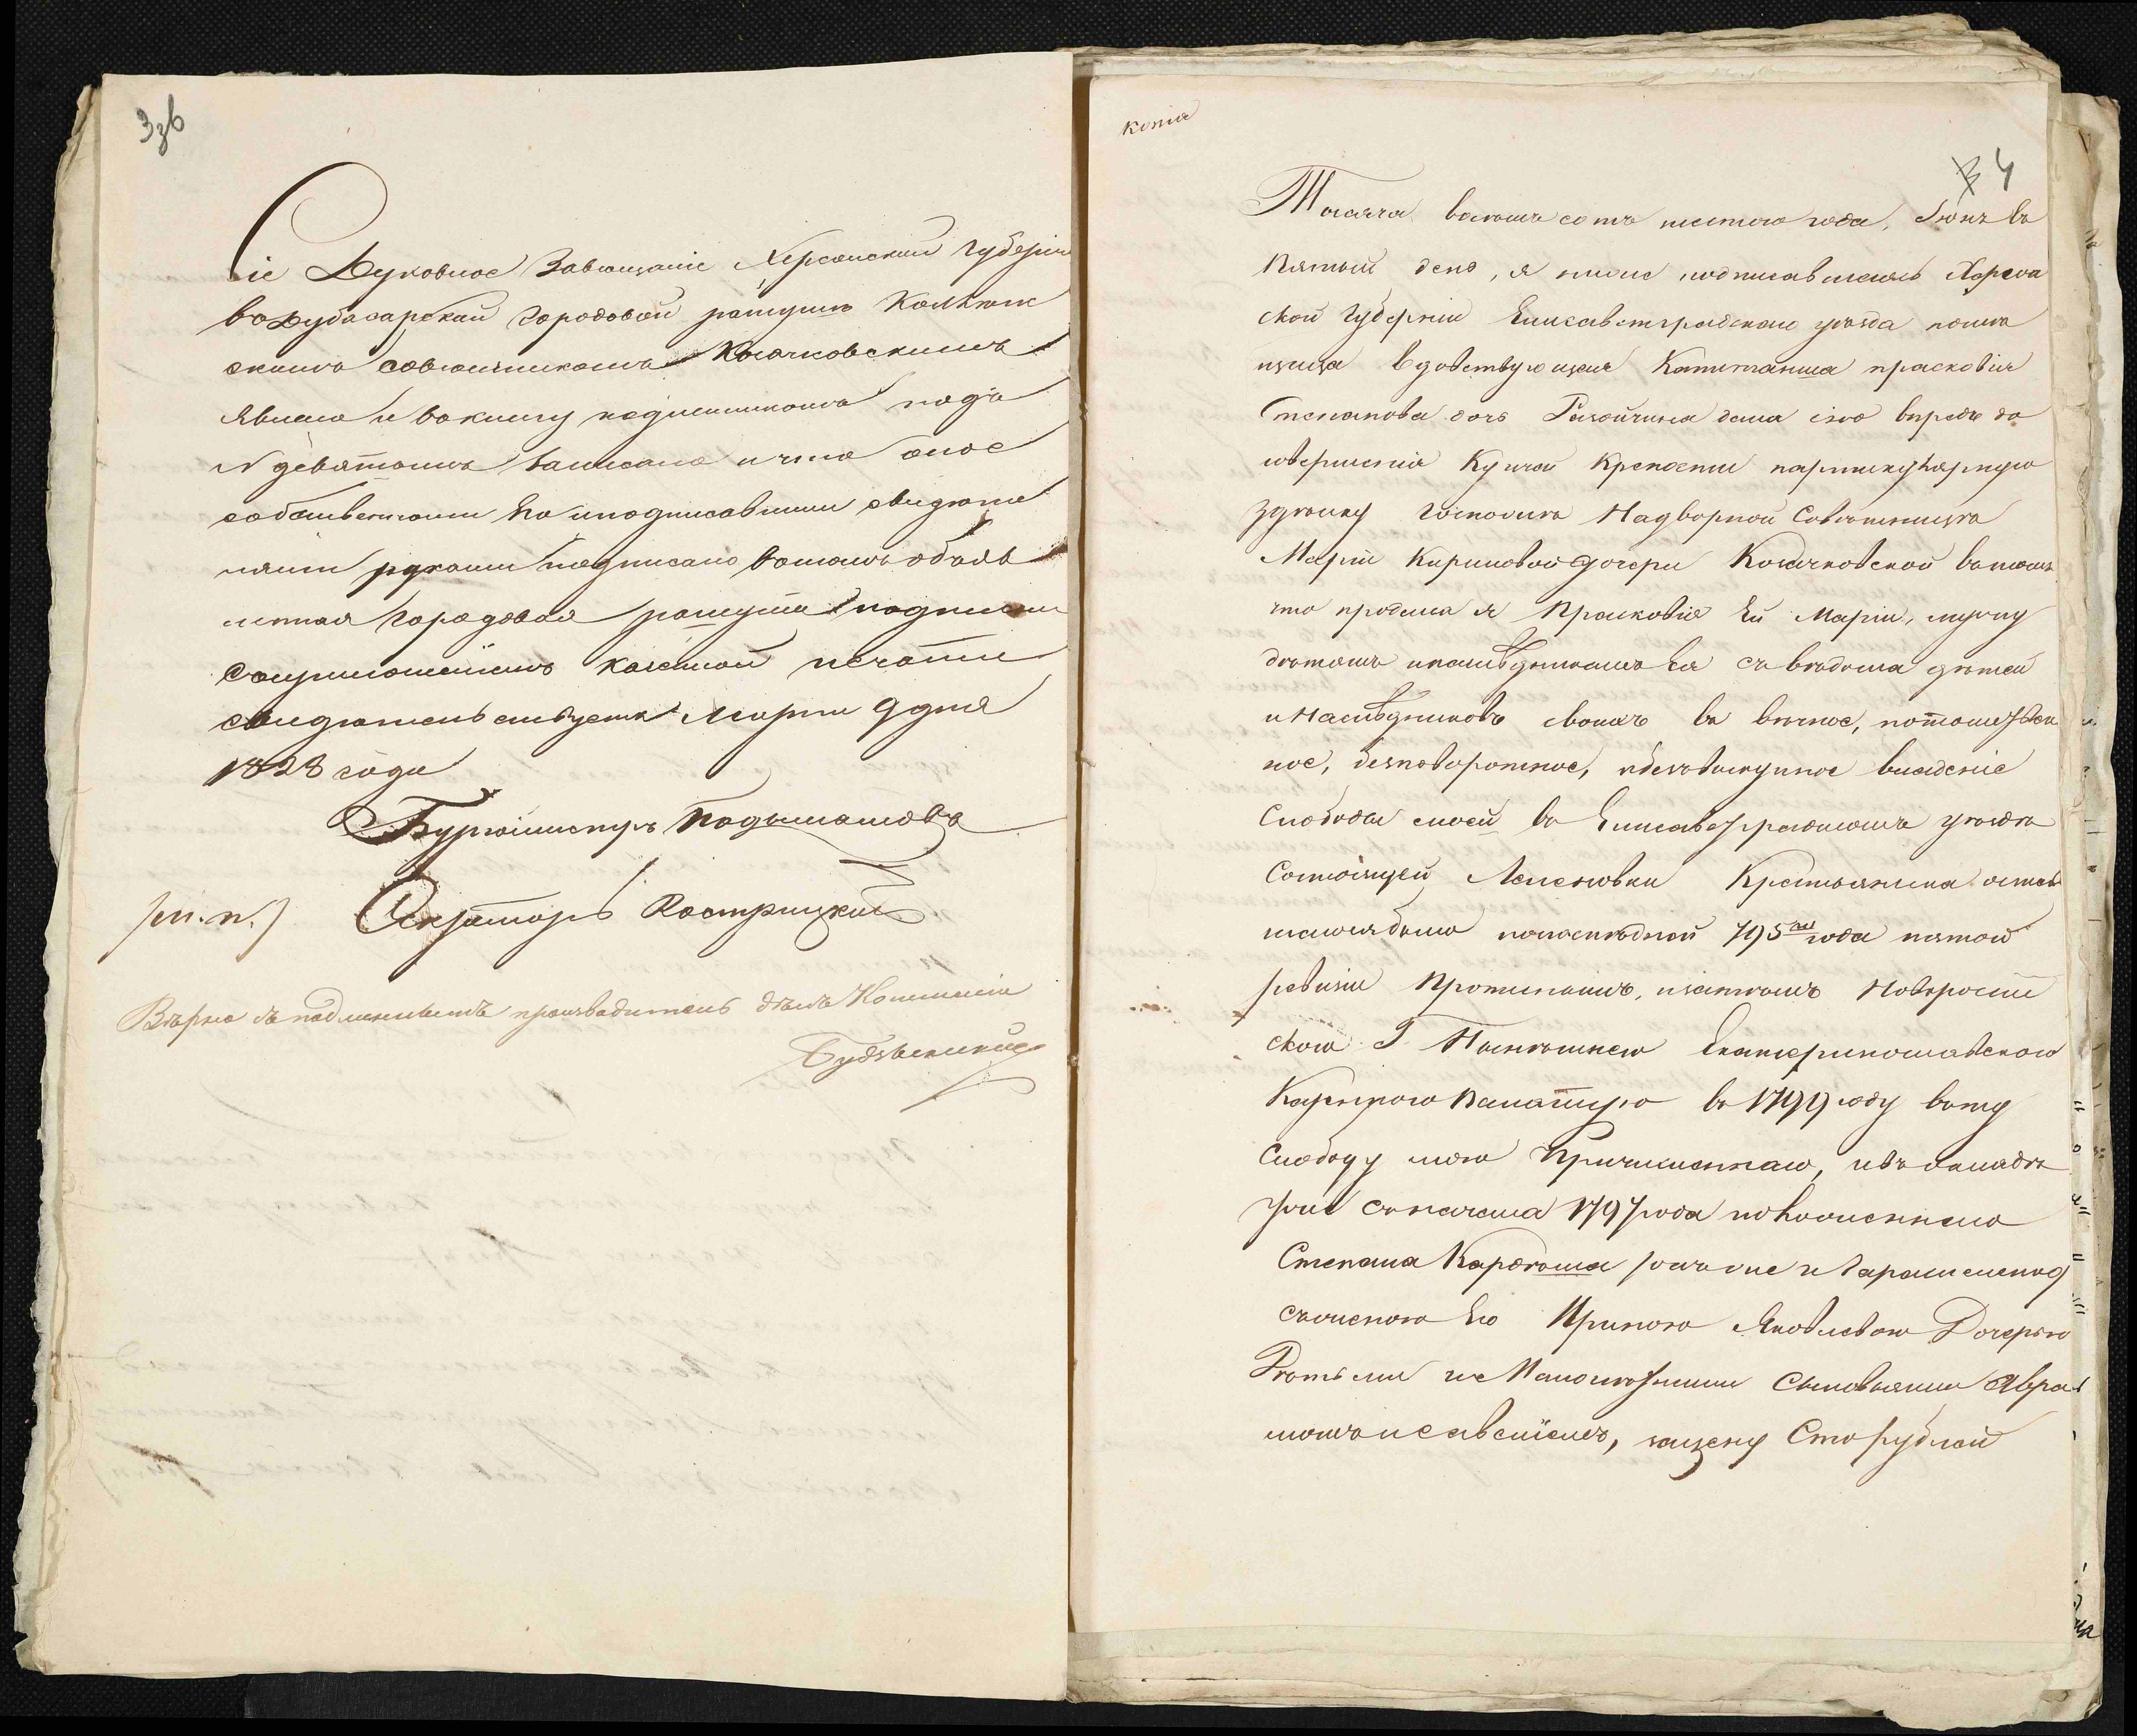 3зв
Сіе Духовное Завѣщаніе Херсонской губерніи
въ Дубосарской городовой ратушѣ Коллежс
скимъ Совѣтникомъ Косачковскимъ
явлено и въ книгу подлинникомъ подъ
N девятымъ записано и что оное
собственными Его и подписавшими свидѣте
лями руками подписано въ томъ объяв
ленная городовая ратуша подписью
съ приложеніемъ казенной печати
свидѣтельствуетъ Марта 9 дня
1828 года
Бургомистръ
(м. п.) Секретарь Костржицкій
Вѣрно съ подлиннымъ производитель дѣлъ Комиссіи
копія
4
Тысяча восемь сотъ шестаго года, Іюня въ
пятый день, я ниже подписавшаяся Херсон
ской губерніи Елисаветградскаго уѣзда помѣ
щица вдовствующая Капитанша Прасковія
Степанова дочь дала сію впредь до
совершенія купчей крепости партикулярную
зделку Госпожѣ Надворной Совѣтницѣ
Маріи Кириловой дочери Косачковской въ томъ
что продала я Прасковія Ей Маріи, мужу
дѣтямъ и наслѣдникамъ Ея съ вѣдома дѣтей
и Наслѣдниковъ своихъ въ вѣчное, потомствен
ное, безповоротное, и безвыкупное владеніе
Слободы моей въ Елисаветградскомъ уѣздѣ
Состоящей Крестьянина оставь
шагося было по последней 795го года пятой
ревизіи и закономъ Новоросій
ской Г Екатеринославскою
Казенною Палатою въ 1799 году въ ту
Слободу мою Причисленнаго, и въ окладѣ
съ начала 1797 года положеннаго
Степана Кардаша
съ женою Его Ириною Яковлевою Дочерью
Дѣтьми ихъ Малолѣтними Сыновьями Авра
момъ и Савеліемъ, за цену Сто рублей